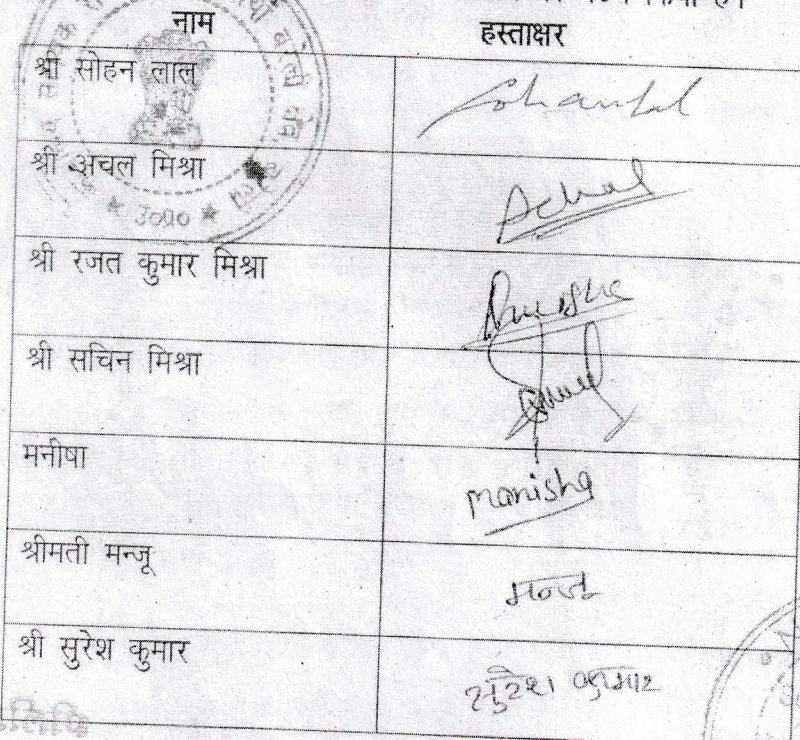 नाम हस्ताक्षर
श्री सोहन लाल Sohanlal
श्री अचल मिश्रा Achal
श्री रजत कुमार मिश्रा
श्री सचिन मिश्रा
मनीषा manisha
श्रीमती मन्जू मन्जू
श्री सुरेश कुमार सुरेश कुमार